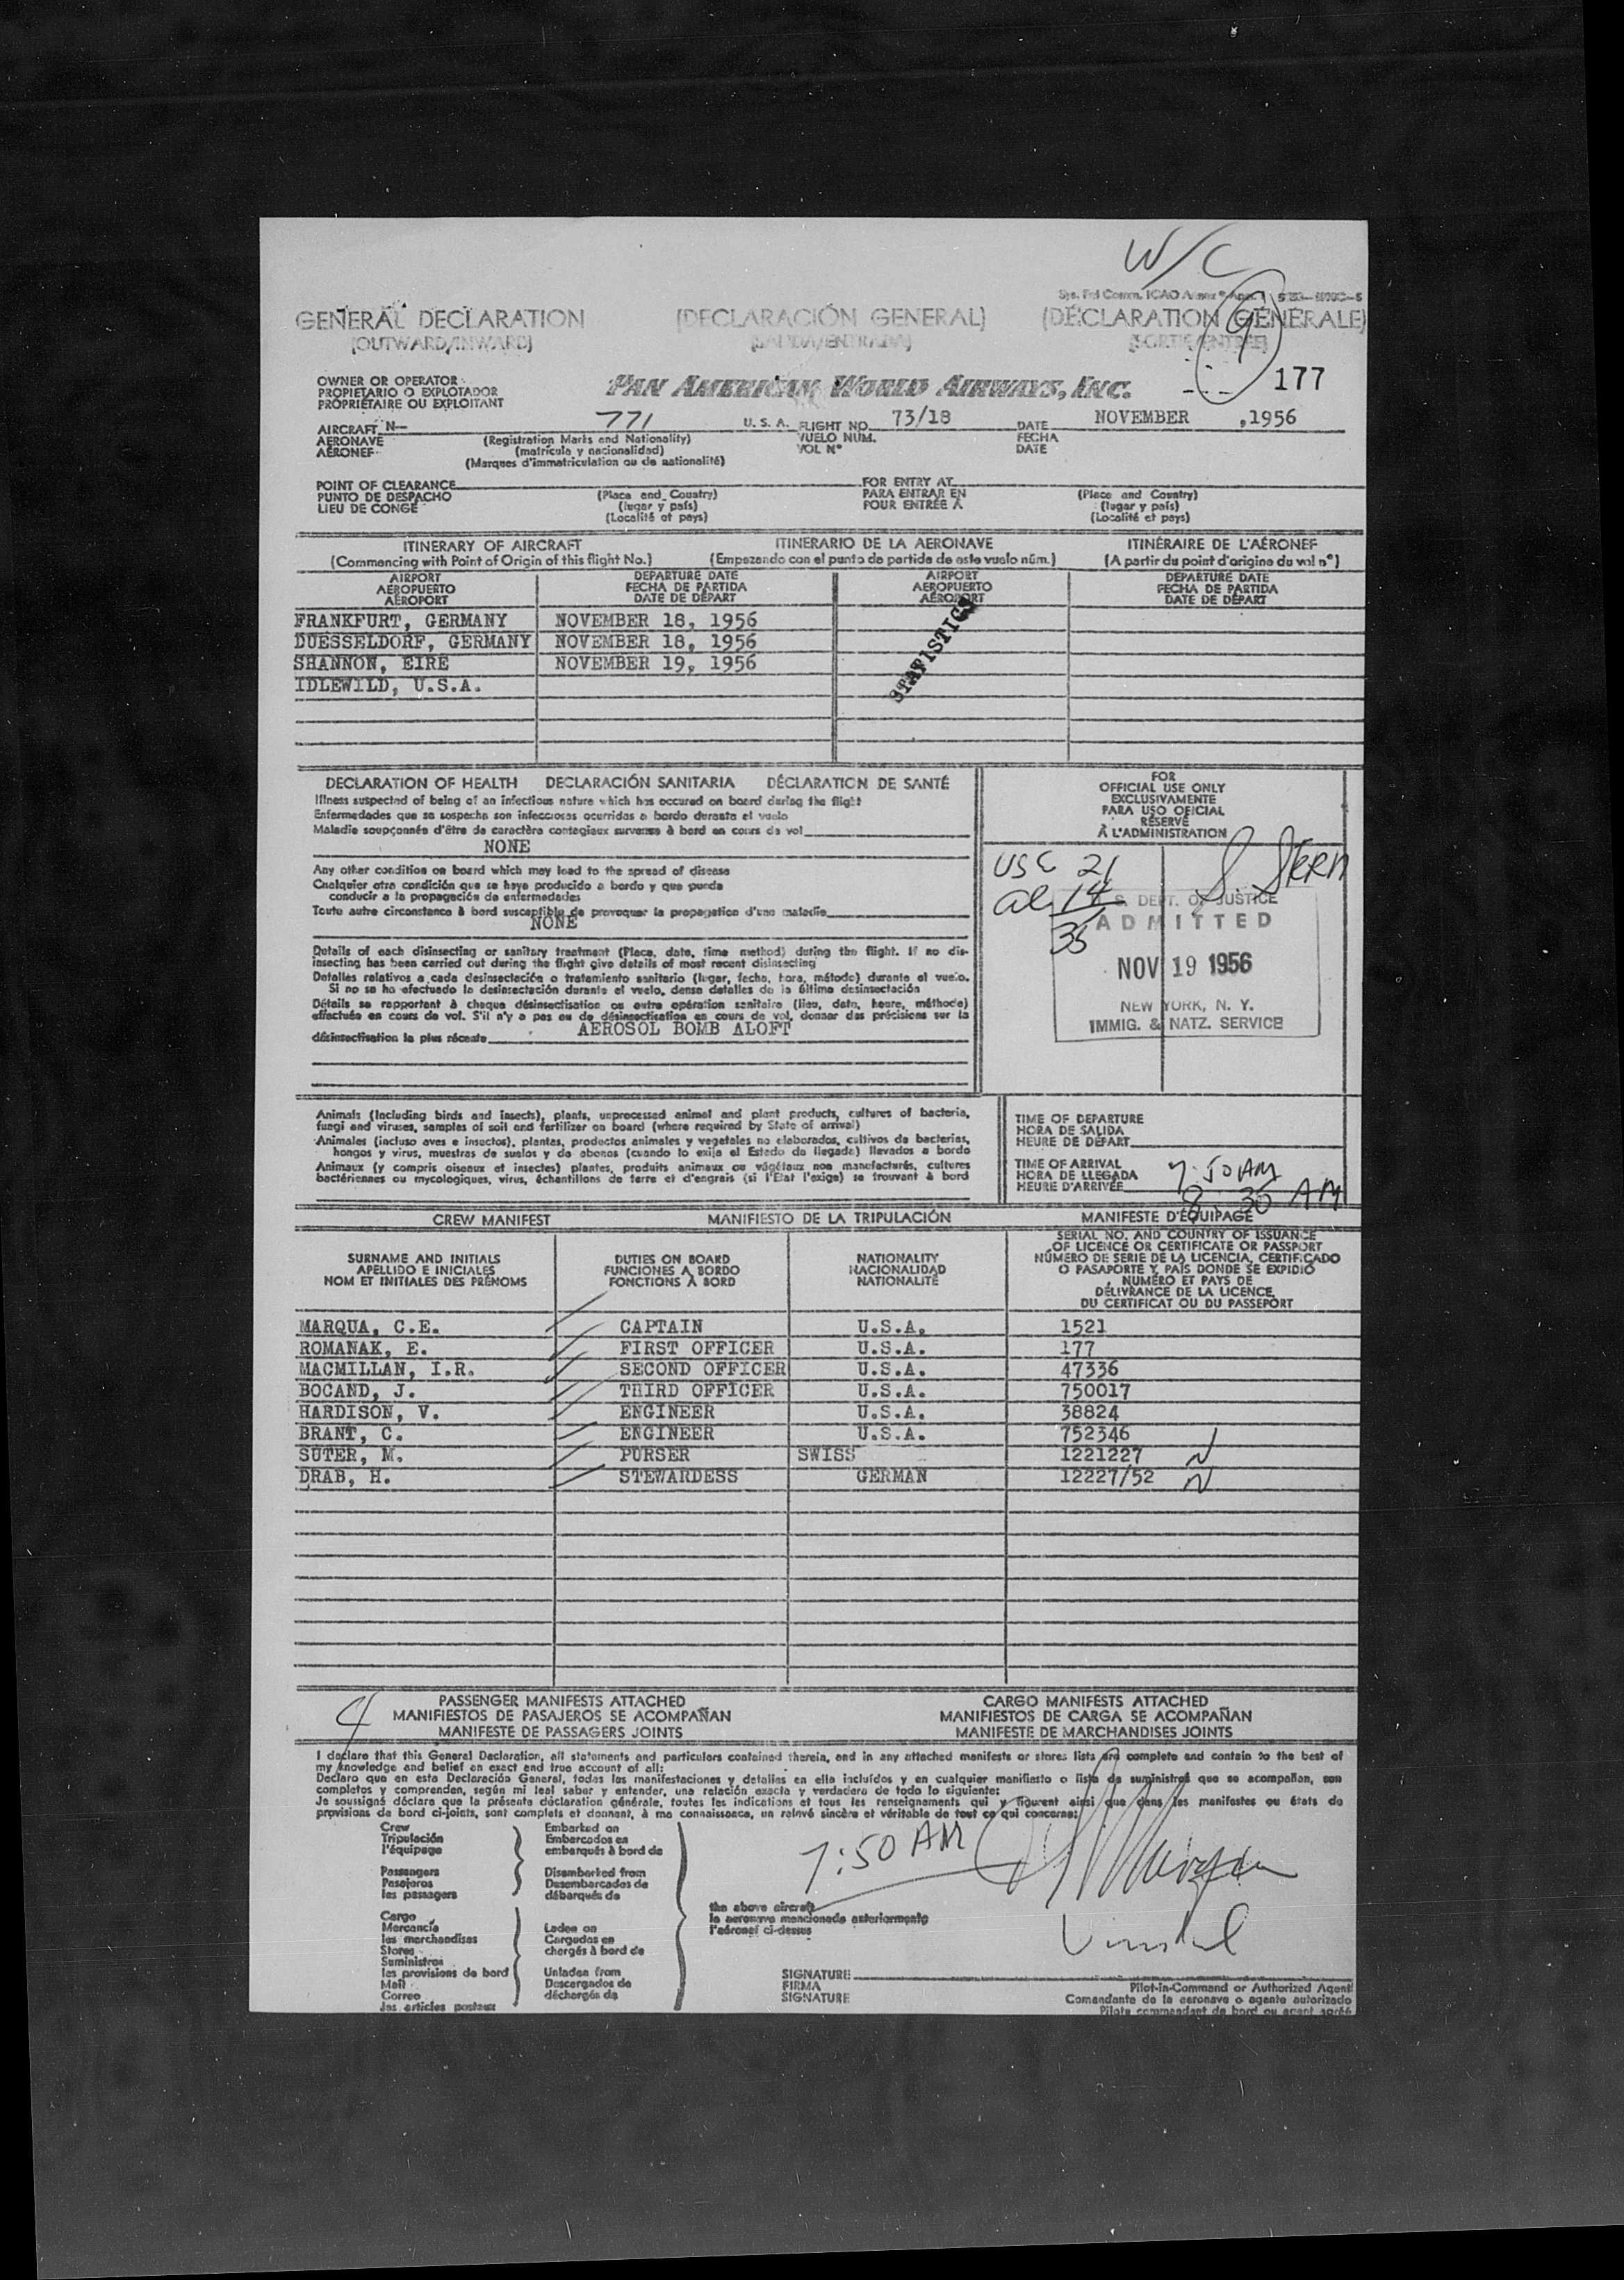 W/C
9
GENERAL DECLARATION (DECLARACIÓN GENERAL) (DÉCLARATION GÉNÉRALE)
(OUTWARD/INWARD) (SALIDA/ENTRADA) (SORTIE/ENTRÉE)
177
OWNER OR OPERATOR
PROPIETARIO O EXPLOTADOR
PROPRIÉTAIRE OU EXPLOITANT
PAN AMERICAN WORLD AIRWAYS, INC.
AIRCRAFT N— 771 U. S. A. FLIGHT NO. 73/18 DATE NOVEMBER ,1956
AERONAVE (Registration Marks and Nationality) VUELO NÚM. FECHA
AÉRONEF (matrícula y nacionalidad) VOL N° DATE
(Marques d'immatriculation ou de nationalité)
POINT OF CLEARANCE FOR ENTRY AT
PUNTO DE DESPACHO (Place and Country) PARA ENTRAR EN (Place and Country)
LIEU DE CONGÉ (lugar y país) POUR ENTRÉE À (lugar y país)
(Localité et pays) (Localité et pays)
ITINERARY OF AIRCRAFT ITINERARIO DE LA AERONAVE ITINÉRAIRE DE L'AÉRONEF
(Commencing with Point of Origin of this flight No.) (Empezando con el punto de partida de este vuelo núm.) (A partir du point d'origine du vol n°)
AIRPORT DEPARTURE DATE AIRPORT DEPARTURE DATE
AEROPUERTO FECHA DE PARTIDA AEROPUERTO FECHA DE PARTIDA
AÉROPORT DATE DE DÉPART AÉROPORT DATE DE DÉPART
FRANKFURT, GERMANY NOVEMBER 18, 1956
DUESSELDORF, GERMANY NOVEMBER 18, 1956
SHANNON, EIRE NOVEMBER 19, 1956
IDLEWILD, U.S.A.
STATISTICS
DECLARATION OF HEALTH DECLARACIÓN SANITARIA DÉCLARATION DE SANTÉ
Illness suspected of being of an infectious nature which has occured on board during the flight
Enfermedades que se sospecha son infecciosas ocurridas a bordo durante el vuelo
Maladie soupçonnée d'être de caractère contagieux survenue à bord en cours de vol
NONE
Any other condition on board which may lead to the spread of disease
Cualquier otra condición que se haya producido a bordo y que pueda
conducir a la propagación de enfermedades
Toute autre circonstance à bord susceptible de provoquer la propagation d'une maladie
NONE
Details of each disinsecting or sanitary treatment (Place, date, time method) during the flight. If no dis-
insecting has been carried out during the flight give details of most recent disinsecting
Detalles relativos a cada desinsectación o tratamiento sanitario (lugar, fecha, hora, método) durante el vuelo.
Si no se ha efectuado la desinsectación durante el vuelo, dense detalles de la última desinsectación
Détails se rapportant à chaque désinsectisation ou autre opération sanitaire (lieu, date, heure, méthode)
effectuée en cours de vol. S'il n'y a pas eu de désinsectisation en cours de vol, donner des précisions sur la
désinsectisation la plus récente AEROSOL BOMB ALOFT
FOR
OFFICIAL USE ONLY
EXCLUSIVAMENTE
PARA USO OFICIAL
RÉSERVÉ
À L'ADMINISTRATION
USC 21
al 14
35
S. Stern
U.S. DEPT. OF JUSTICE
ADMITTED
NOV 19 1956
NEW YORK, N. Y.
IMMIG. & NATZ. SERVICE
Animals (Including birds and insects), plants, unprocessed animal and plant products, cultures of bacteria,
fungi and viruses, samples of soil and fertilizer on board (where required by State of arrival)
Animales (incluso aves e insectos), plantas, productos animales y vegetales no elaborados, cultivos de bacterias,
hongos y virus, muestras de suelos y de abonos (cuando lo exija el Estado de llegada) llevados a bordo
Animaux (y compris oiseaux et insectes) plantes, produits animaux ou végétaux non manufacturés, cultures
bactériennes ou mycologiques, virus, échantillons de terre et d'engrais (si l'État l'exige) se trouvant à bord
TIME OF DEPARTURE
HORA DE SALIDA
HEURE DE DÉPART
TIME OF ARRIVAL
HORA DE LLEGADA 7:50 AM
HEURE D'ARRIVÉE 8:30 AM
CREW MANIFEST MANIFIESTO DE LA TRIPULACIÓN MANIFESTE D'ÉQUIPAGE
SURNAME AND INITIALS DUTIES ON BOARD NATIONALITY
APELLIDO E INICIALES FUNCIONES A BORDO NACIONALIDAD
NOM ET INITIALES DES PRÉNOMS FONCTIONS À BORD NATIONALITÉ
SERIAL NO. AND COUNTRY OF ISSUANCE
OF LICENCE OR CERTIFICATE OR PASSPORT
NÚMERO DE SERIE DE LA LICENCIA, CERTIFICADO
O PASAPORTE Y PAÍS DONDE SE EXPIDIÓ
NUMÉRO ET PAYS DE
DÉLIVRANCE DE LA LICENCE,
DU CERTIFICAT OU DU PASSEPORT
MARQUA, C.E. CAPTAIN U.S.A. 1521
ROMANAK, E. FIRST OFFICER U.S.A. 177
MACMILLAN, I.R. SECOND OFFICER U.S.A. 47336
BOCAND, J. THIRD OFFICER U.S.A. 750017
HARDISON, V. ENGINEER U.S.A. 38824
BRANT, C. ENGINEER U.S.A. 752346
SUTER, M. PURSER SWISS 1221227 N
DRAB, H. STEWARDESS GERMAN 12227/52 N
4
PASSENGER MANIFESTS ATTACHED CARGO MANIFESTS ATTACHED
MANIFIESTOS DE PASAJEROS SE ACOMPAÑAN MANIFIESTOS DE CARGA SE ACOMPAÑAN
MANIFESTE DE PASSAGERS JOINTS MANIFESTE DE MARCHANDISES JOINTS
I declare that this General Declaration, all statements and particulars contained therein, and in any attached manifests or stores lists are complete and contain to the best of
my knowledge and belief an exact and true account of all:
Declaro que en esta Declaración General, todas las manifestaciones y detalles en ella incluídos y en cualquier manifiesto o lista de suministros que se acompañan, son
completos y comprenden, según mi leal saber y entender, una relación exacta y verdadera de todo lo siguiente:
Je soussigné déclare que la présente déclaration générale, toutes les indications et tous les renseignements qui y figurent ainsi que dans les manifestes ou états de
provisions de bord ci-joints, sont complets et donnent, à ma connaissance, un relevé sincère et véritable de tout ce qui concerne:
Crew Embarked on
Tripulación Embarcados en
l'équipage embarqués à bord de
7:50 AM
Passengers Disembarked from
Pasajeros Desembarcados de
les passagers débarqués de
the above aircraft
la aeronave mencionada anteriormente
l'aéronef ci-dessus
Cargo
Mercancía Laden on
les marchandises Cargados en
Stores chargés à bord de
Suministros
les provisions de bord Unladen from
Mail Descargados de
Correo déchargés de
les articles postaux
SIGNATURE
FIRMA
SIGNATURE
Pilot-in-Command or Authorized Agent
Comandante de la aeronave o agente autorizado
Pilote commandant de bord ou agent agréé